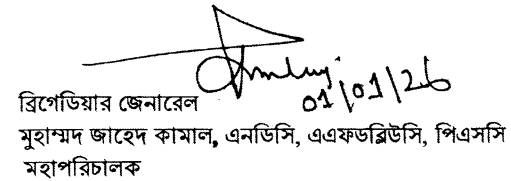 01/01/26
ব্রিগেডিয়ার জেনারেল
মুহাম্মদ জাহেদ কামাল, এনডিসি, এএফডব্লিউসি, পিএসসি
মহাপরিচালক